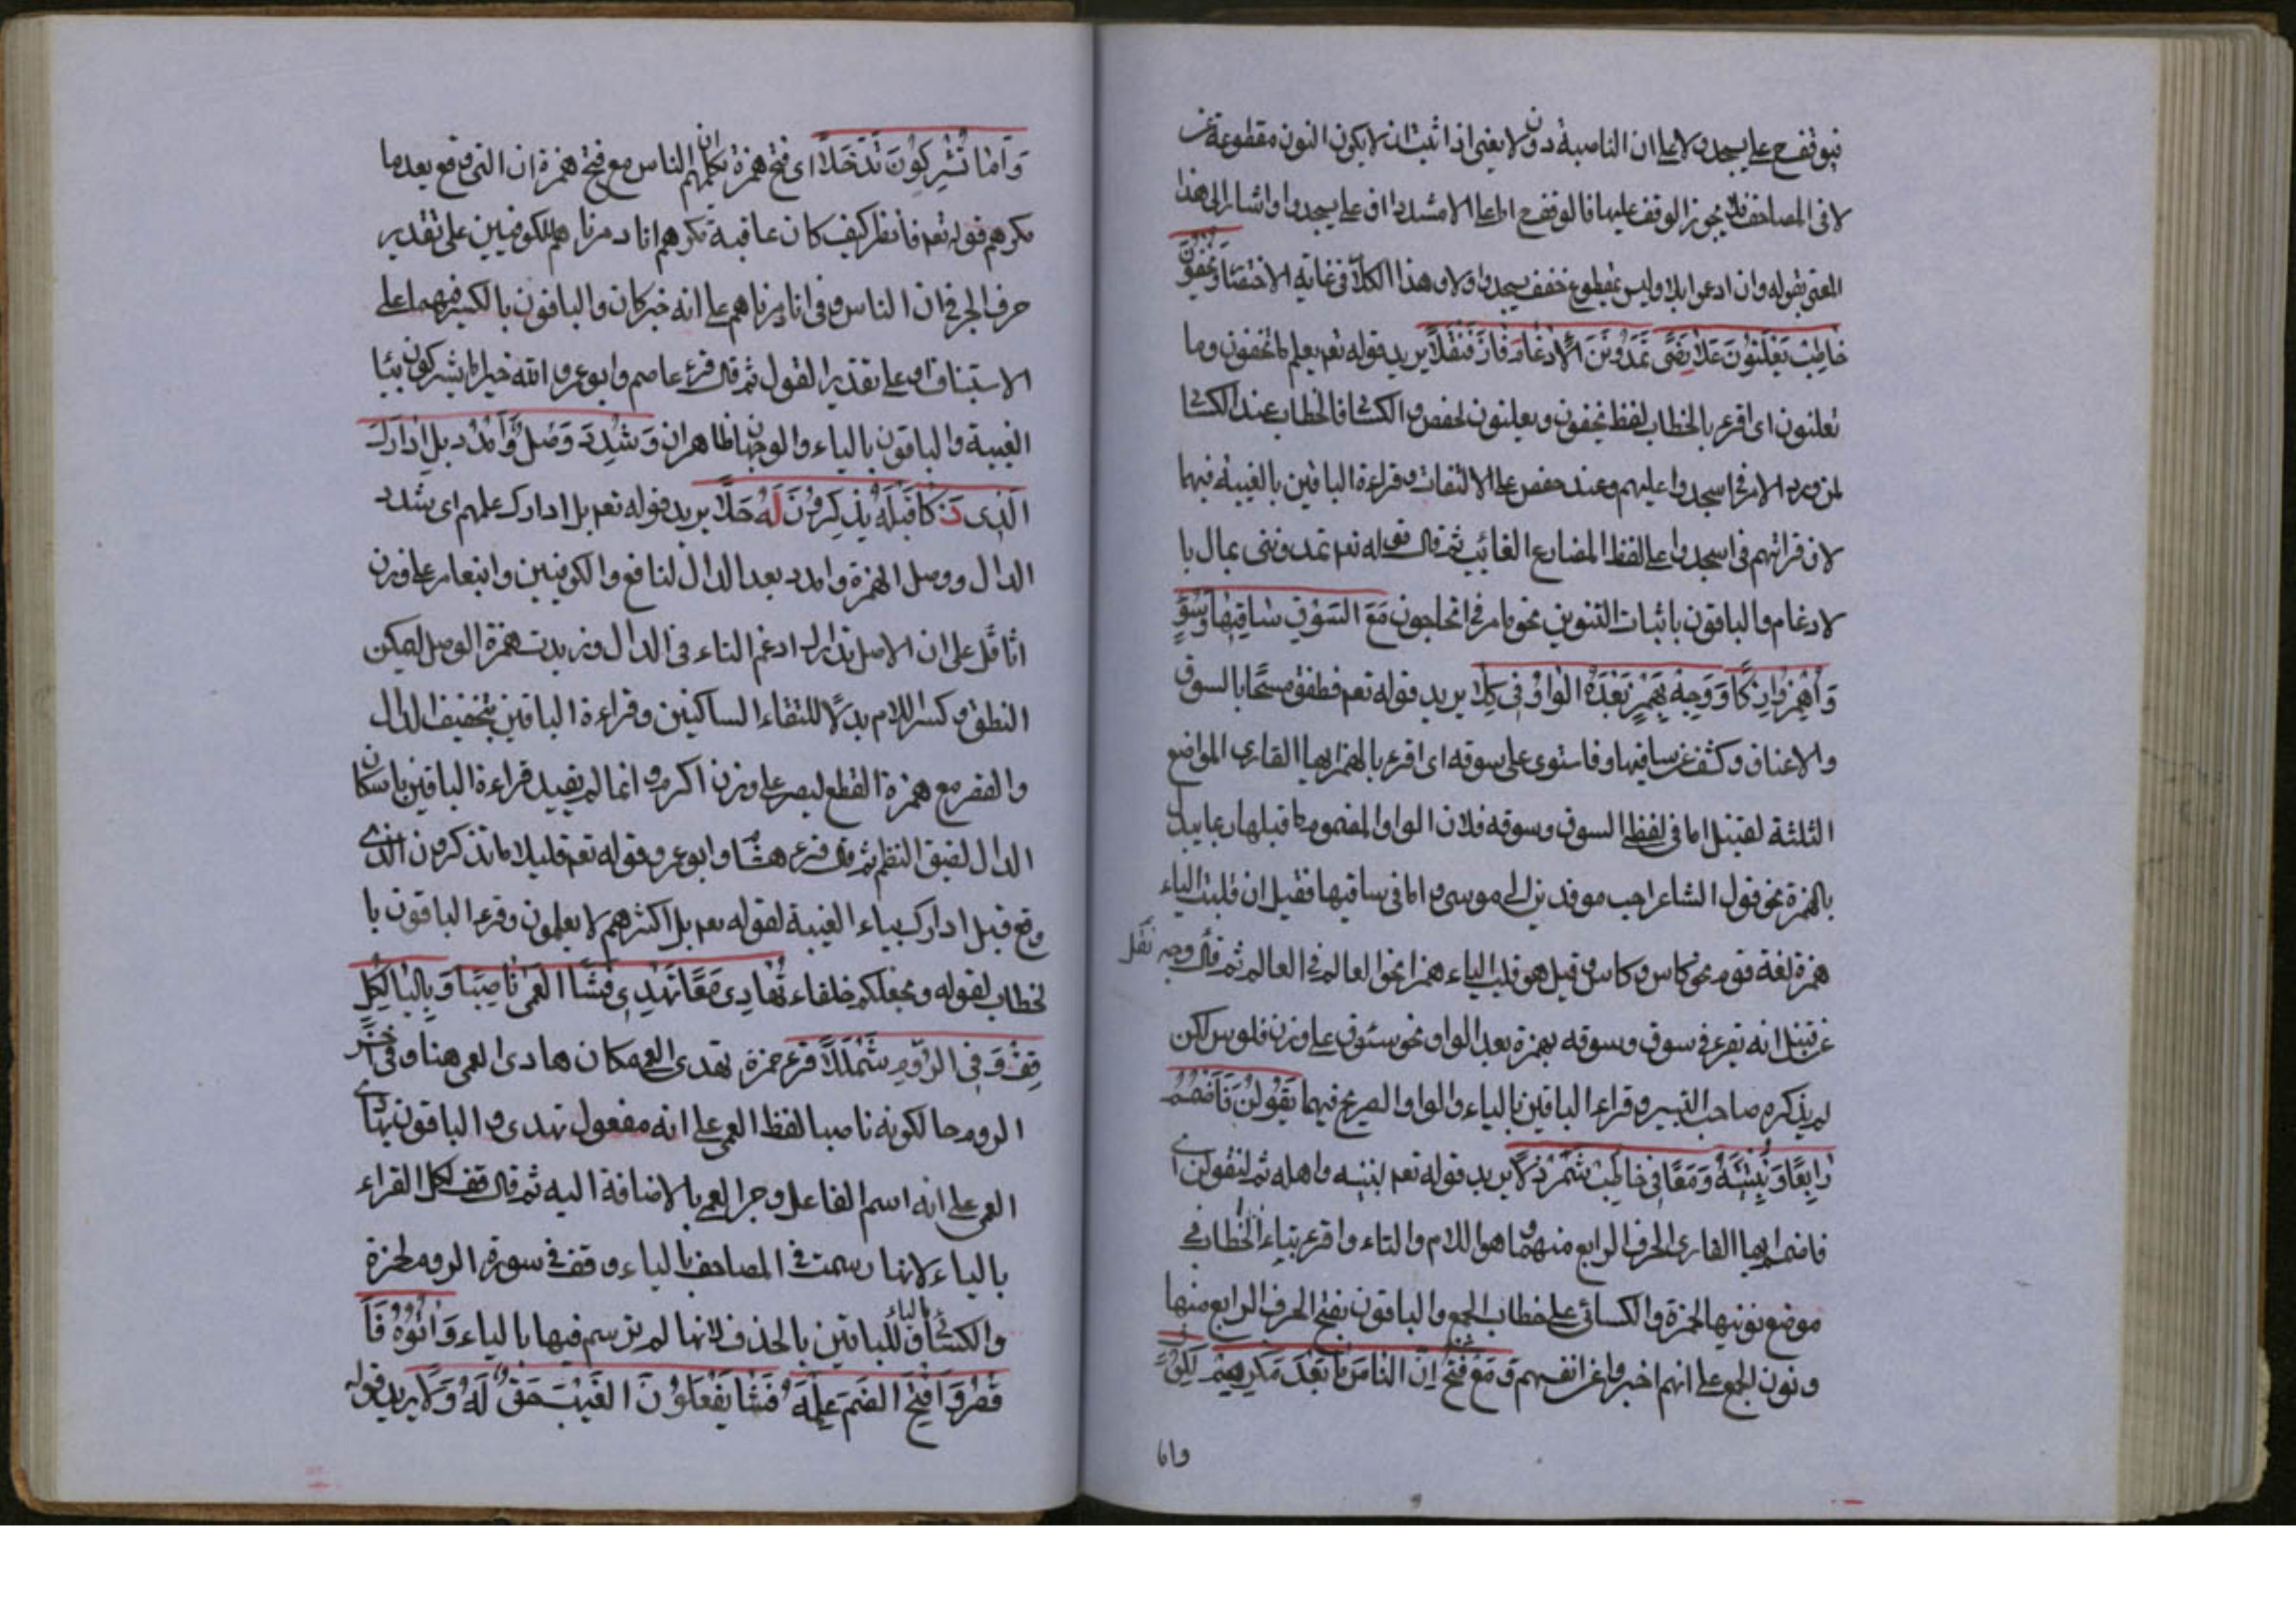 فيوقف ح على يسجدوا لا على ان الناصبة دون لا يعني اذا ثبت ان لا يكون النون مقطوعة عن
لا في المصاحف فلا يجوز الوقف عليها فالوقف ح اما على الا مشددا او على يسجدوا واشار الى هذا
المعنى بقوله وان ادغموا بلا وليس بمقطوع فقف يسجدوا ولا وهذا الكلام في غاية الاختفاء وَيُخْفُونَ
خَاطِبْ يُعْلِنُونَ عَلَى رِضًى تُمِدُّونَنِ الْاِدْغَامُ فَازَ فَثَقَّلَا يريد قوله تعم يعلم ما تخفون وما
تعلنون اى اقرء بالخطاب لفظ تخفون ويعلنون لحفص والكسا فالخطاب عند الكسا
لمن ورد الامر في اسجدوا عليهم وعند حفص على الالتفات وقراءة الباقين بالغيبة فيهما
لان قراتهم في اسجدوا على لفظ المضارع الغائب ثم قال قوله تعم تمدونني بمال با
لادغام والباقون باثبات التنوين نحو ما مر في اتحاجون مَعَ السُّوْقِ سَاقَيْهَا وَسُوْقِ
وَاهْمِزُوا زَكَا وَوَجْهٌ بِهَمْزٍ بَعْدَهُ الْوَاوُ وُكِّلَا يريد قوله تعم فطفق مسحا بالسوق
والاعناق وكشفت عن ساقيها وفاستوى على سوقه اى اقرء بالهمز ايها القارى المواضع
الثلثة لقنبل اما في لفظ السوق وسوقه فلان الواو المضموم ما قبلها ربما يبدل
بالهمزة نحو قول الشاعر احب موقدين الى موسى واما في ساقيها فقيل ان قلبت الياء
همزة لغة قوم نحو كاس وكاس وقيل هو قلب الياء همزا نحو العالم في العالم ثم قال وجه نقل
عن قنبل انه يقرء في سوق وسوقه بهمزة بعد الواو نحو سئوق على وزن فلوس لكن
لم يذكره صاحب التيسير وقراءة الباقين بالياء والواو الصريح فيهما تَقُولَنَّ فَاضْمُمْ
رَابِعًا وَنُبَيِّتَنَّهُ وَمَعًا فِي خَاطِبْ شَمَرْدَلَا يريد قوله تعم لنبيتنه واهله ثم لنقولن اى
فاضم ايها القارى الحرف الرابع منهما وهو اللام والتاء واقرء بتاء الخطاب في
موضع نونيهما لحمزة والكسائى على خطاب الجمع والباقون بفتح الحرف الرابع منهما
ونون الجمع على انهم اخبروا عن انفسهم وَمَعْ فَتْحِ اِنَّ النَّاسَ مَا بَعْدَ مَكْرِهِمْ لِكُوفٍ
واما
وَاَمَّا تُشْرِكُونَ نَدٍ حَلَا اى فتح همزة تكلمهم ان الناس مع فتح همزة ان التى وقع بعد ما
مكرهم قوله تعم فانظر كيف كان عاقبة مكرهم انا دمرناهم للكوفيين على تقدير
حرف الجر في ان الناس وفى انا دمرناهم على انه خبر كان والباقون بالكسر فيهما على
الاستيناف او على تقدير القول ثم قال قرء عاصم وابو عمرو الله خير اما يشركون بياء
الغيبة والباقون بالياء والوجهان ظاهران وَشَدِّدْ وَصِلْ وَامْدُدْ بَلِ ادَّارَكَ
الَّذِى ذَكَا قَبْلَهُ يَذَّكَّرُونَ لَهُ حُلَا يريد قوله تعم بل ادارك علمهم اى شدد
الدال ووصل الهمزة وامدد بعد الدال لنافع والكوفيين وابنعامر على وزن
اثاقل على ان الاصل تدارك ادغم التاء في الدال وزيدت همزة الوصل ليمكن
النطق وكسر اللام بدلا للتقاء الساكنين وقراءة الباقين بتخفيف الدال
والقصر مع همزة القطع ليصير على وزن اكرم وانما لم يفيد قراءة الباقين باسكان
الدال لضيق النظم ثم قال قرء هشا وابو عمرو قوله تعم قليلا ما تذكرون الذى
وقع قبل ادارك بياء الغيبة لقوله تعم بل اكثرهم لا يعلمون وقرء الباقون با
لخطاب لقوله ويجعلكم خلفاء بِهَادِى مَعًا تَهْدِى فَشَا الْعُمْىَ نَاصِبًا وَبِالْيَا لِكُلٍّ
قِفْ وَفِى الرُّوْمِ شَمْلَلَا قرء حمزة تهدى العمى مكان هادى العمى هنا وفى آخر
الروم حالكونه ناصبا لفظ العمى على انه مفعول تهدى والباقون بهادى
العمى على انه اسم الفاعل وجر العمى بالاضافة اليه ثم قال قف لكل القراء
بالياء لانها رسمت في المصاحف بالياء وقف في سورة الروم لحمزة
والكسائى بالياء وللباقين بالحذف لانها لم ترسم فيها بالياء وَآتُوهُ فَا
قْصُرْ وَافْتَحِ الضَّمَّ عِلْمُهُ فَشَا يَفْعَلُونَ الْغَيْبُ حَقٌّ لَهُ وَلَا يريد قوله